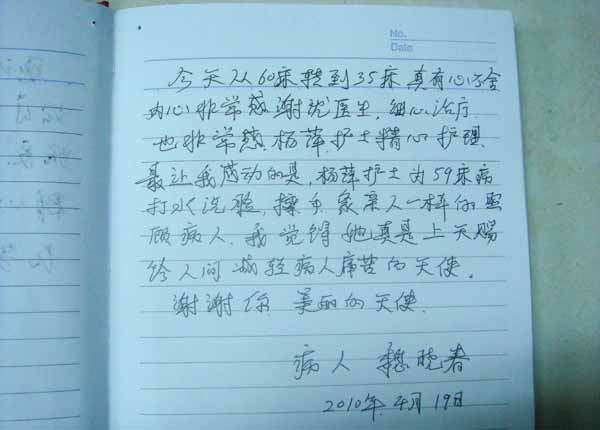 No.
Date
今天从60床转到35床,真有心方全
内心非常感谢沈医生,细心治疗.
也非常感 杨萍护士精心护理.
最让我感动的是,杨萍护士为59床病
打水洗脸,擦手.象亲人一样的照
顾病人.我觉得她真是上天赐
给人间减轻病人痛苦的天使.
谢谢你 美丽的天使.
病人 晓春
2010年4月19日